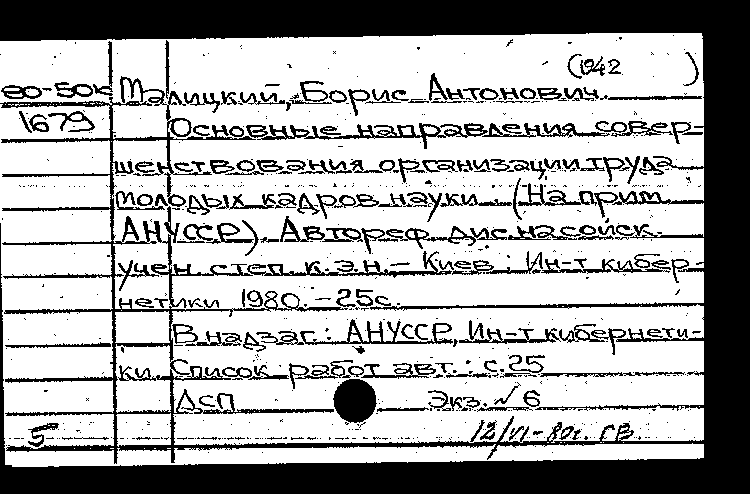 (1942 )
80-50к Малицкий, Борис Антонович.
1679 Основные направления совер-
шенствования организации труда
молодых кадров науки : (На прим.
АНУССР). Автореф. дис. на соиск.
учен. степ. к.э.н. – Киев : Ин-т кибер-
нетики, 1980. – 25с.
В надзаг.: АНУССР, Ин-т кибернети-
ки. Список работ авт. : с.25
ДСП Экз. № 6
5 12/VI-80г. ГВ.